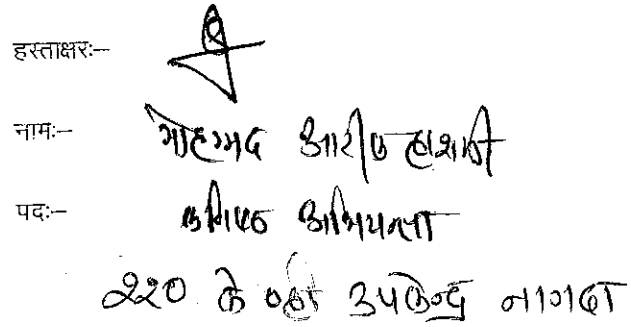 हस्ताक्षरः–
नामः– मोहम्मद आरीफ हाशमी
पदः– कनिष्ठ अभियन्ता
220 के व्ही उपकेन्द्र नागदा